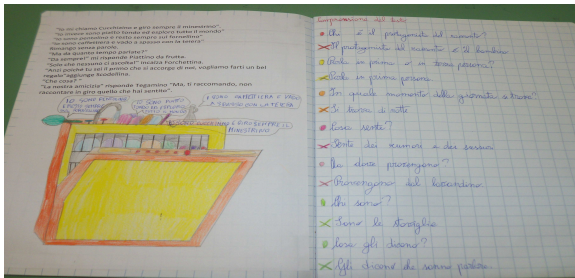 "Io mi chiamo Cucchiaino e giro sempre il minestrino".
"Io invece sono piatto fondo ed esploro tutto il mondo"
"Io sono pentolino e resto sempre sul fornellino"
"Io sono caffettiera e vado a spasso con la teiera"
Rimango senza parole.
"Ma da quanto tempo parlate?"
"Da sempre!" mi risponde Piattino da frutta.
"Solo che nessuno ci ascolta!" incalza Forchettina.
"Anzi poiché tu sei il primo che si accorge di noi, vogliamo farti un bel
regalo" aggiunge Scodellina.
"Che cosa?"
"La nostra amicizia" risponde Tegamino "Ma, ti raccomando, non
raccontare in giro quello che hai sentito".
IO SONO PENTOLINO
E RESTO SEMPRE
IO SONO PIATTO
IO SONO CAFFETTIERA E VADO
A SPASSO CON LA TEIERA
E GIRO SEMPRE IL
MINESTRINO
Comprensione del testo
Chi è il protagonista del racconto?
Il protagonista del racconto è il bambino
Parla in prima o in terza persona?
Parla in prima persona
In quale momento della giornata si trova?
Si trova di notte
Cosa sente?
Sente dei rumori e dei sussurri
Da dove provengono?
Provengono dal lavandino
Chi sono?
Sono le stoviglie
Cosa gli dicono?
Gli dicono che sanno parlare